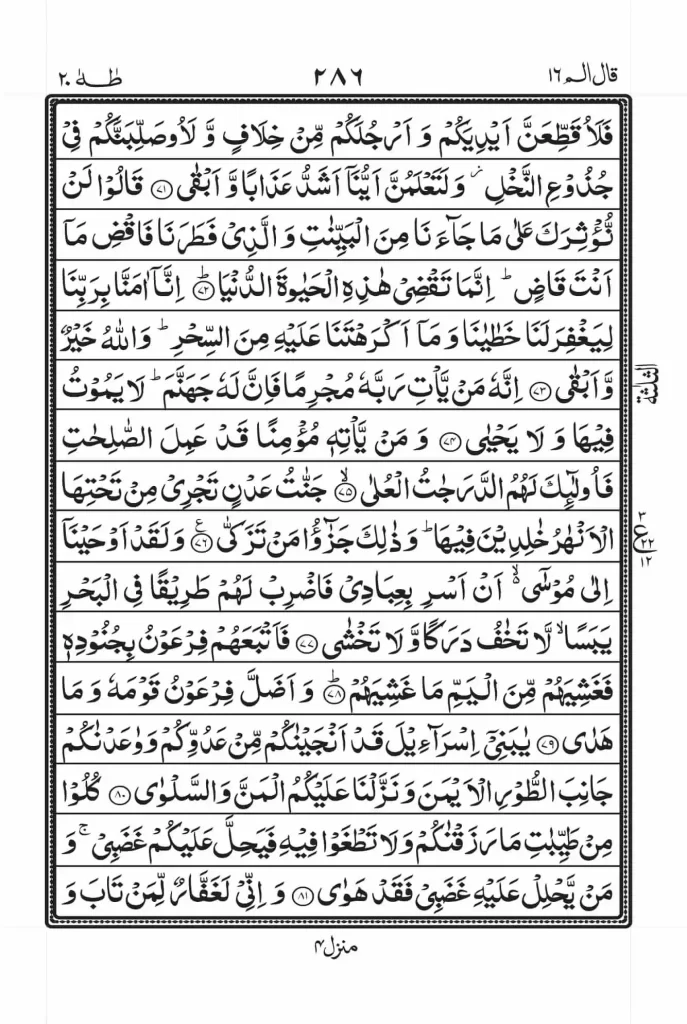 قال الم ١٦
٢٨٦
طٰهٰ ٢٠
فَلَاُقَطِّعَنَّ اَيْدِيَكُمْ وَ اَرْجُلَكُمْ مِّنْ خِلَافٍ وَّ لَاُوصَلِّبَنَّكُمْ فِيْ
جُذُوْعِ النَّخْلِ ز وَلَتَعْلَمُنَّ اَيُّنَاۤ اَشَدُّ عَذَابًا وَّ اَبْقٰى ﴿٧١﴾ قَالُوْا لَنْ
نُّؤْثِرَكَ عَلٰى مَا جَآءَنَا مِنَ الْبَيِّنٰتِ وَالَّذِيْ فَطَرَنَا فَاقْضِ مَاۤ
اَنْتَ قَاضٍ ؕ اِنَّمَا تَقْضِيْ هٰذِهِ الْحَيٰوةَ الدُّنْيَا ﴿٧٢﴾ؕ اِنَّاۤ اٰمَنَّا بِرَبِّنَا
لِيَغْفِرَلَنَا خَطٰيٰنَا وَمَاۤ اَكْرَهْتَنَا عَلَيْهِ مِنَ السِّحْرِ ؕ وَاللّٰهُ خَيْرٌ
وَّاَبْقٰى ﴿٧٣﴾ اِنَّهٗ مَنْ يَّاْتِ رَبَّهٗ مُجْرِمًا فَاِنَّ لَهٗ جَهَنَّمَ ؕ لَا يَمُوْتُ
الثلثة
فِيْهَا وَ لَا يَحْيٰى ﴿٧٤﴾ وَ مَنْ يَّاْتِهٖ مُؤْمِنًا قَدْ عَمِلَ الصّٰلِحٰتِ
فَاُولٰٓئِكَ لَهُمُ الدَّرَجٰتُ الْعُلٰى ﴿٧٥﴾ۙ جَنّٰتُ عَدْنٍ تَجْرِيْ مِنْ تَحْتِهَا
الْاَنْهٰرُ خٰلِدِيْنَ فِيْهَا ؕ وَذٰلِكَ جَزٰٓؤُا مَنْ تَزَكّٰى ﴿٧٦﴾ع وَلَقَدْ اَوْحَيْنَاۤ
٣
ع ٢٢
١٢
اِلٰى مُوْسٰٓى ۙ اَنْ اَسْرِ بِعِبَادِيْ فَاضْرِبْ لَهُمْ طَرِيْقًا فِي الْبَحْرِ
يَبَسًا ۙ لَّا تَخٰفُ دَرَكًا وَّلَا تَخْشٰى ﴿٧٧﴾ فَاَتْبَعَهُمْ فِرْعَوْنُ بِجُنُوْدِهٖ
فَغَشِيَهُمْ مِّنَ الْيَمِّ مَا غَشِيَهُمْ ﴿٧٨﴾ؕ وَاَضَلَّ فِرْعَوْنُ قَوْمَهٗ وَ مَا
هَدٰى ﴿٧٩﴾ يٰبَنِيْۤ اِسْرَآءِيْلَ قَدْ اَنْجَيْنٰكُمْ مِّنْ عَدُوِّكُمْ وَوٰعَدْنٰكُمْ
جَانِبَ الطُّوْرِ الْاَيْمَنَ وَنَزَّلْنَا عَلَيْكُمُ الْمَنَّ وَالسَّلْوٰى ﴿٨٠﴾ كُلُوْا
مِنْ طَيِّبٰتِ مَا رَزَقْنٰكُمْ وَلَا تَطْغَوْا فِيْهِ فَيَحِلَّ عَلَيْكُمْ غَضَبِيْ ۚ وَ
مَنْ يَّحْلِلْ عَلَيْهِ غَضَبِيْ فَقَدْ هَوٰى ﴿٨١﴾ وَ اِنِّيْ لَغَفَّارٌ لِّمَنْ تَابَ وَ
منزل ٤